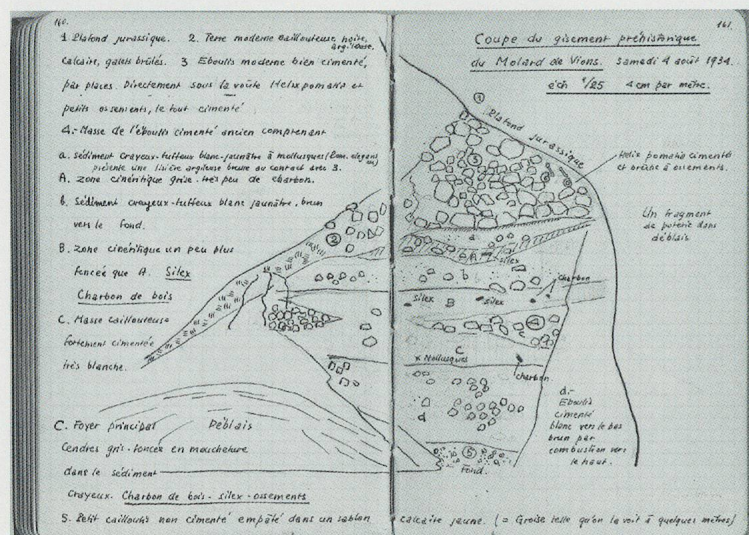 160.
1. Plafond jurassique. 2. Terre moderne caillouteuse noire,
argileuse.
calcaire, galets brûlés. 3 Eboulis moderne bien cimenté,
par places. Directement sous la voûte Helix pomatia et
petits ossements, le tout cimenté
4.- Masse de l'éboulis cimenté ancien comprenant
a. sédiment crayeux-tuffeux blanc-jaunâtre à mollusques
présente une lisière argileuse brune au contact avec 3.
A. zone cinéritique grise très peu de charbon.
b. Sédiment crayeux-tuffeux blanc jaunâtre, brun
vers le fond.
B. zone cinéritique un peu plus
foncée que A. Silex
Charbon de bois
c. Masse caillouteuse
fortement cimentée
très blanche.
C. Foyer principal
Cendres gris-foncées en moucheture
dans le sédiment
crayeux. Charbon de bois - silex - ossements
5. Petit cailloutis non cimenté empâté dans un sablon calcaire jaune. (= Groise telle qu'on la voit à quelques mètres)
2
Déblais
161.
Coupe du gisement préhistorique
du Molard de Vions. Samedi 4 août 1934.
éch 1/25 4 cm par mètre.
1
Plafond jurassique
3
Helix pomatia cimentés
et brèche à ossements.
Un fragment
de poterie dans
déblais
a
A
silex
b
charbon
silex B silex
4
c
C
x Mollusques
charbon
d
d.-
Eboulis
cimenté
blanc vers le bas
brun par
combustion vers
le haut.
5
Fond.